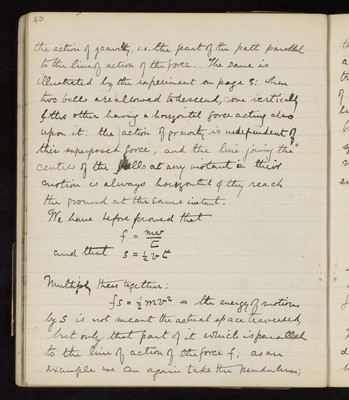 40
the action of gravity, i.e. the part of the path parallel
to the line of action of the force. The same is
illustrated by the experiment on page 8: when
two balls are allowed to descend, one vertically
& the other having a horizontal force acting also
upon it: the action of gravity is independent of
this superposed force, and the line joining the
centres of the balls at any instant in their
motion is always horizontal & they reach
the ground at the same instant.
We have before proved that
f = mv/t
and that s = ½ v t
Multiply these together:
fs = ½ mv² = the energy of motion
by s is not meant the actual space traversed,
but only that part of it which is parallel
to the line of action of the force f; as an
example we can again take the pendulum;